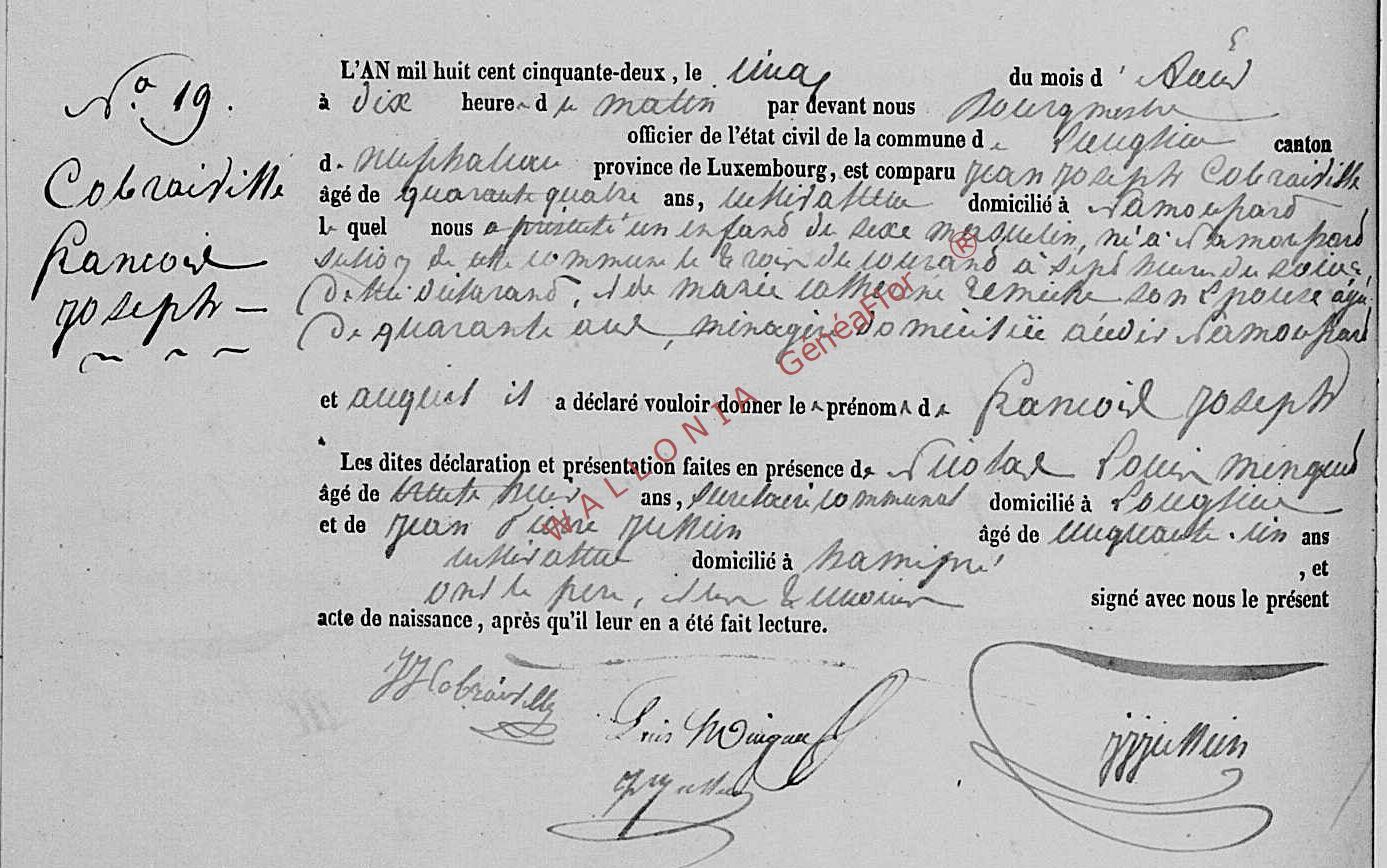 N.o 19.
Cobraiville
francois
joseph
L'AN mil huit cent cinquante-deux, le cinq du mois d' Aout
à dix heure d u matin par devant nous Bourgmestre
officier de l'état civil de la commune d e Longlier canton
d e Neufchateau province de Luxembourg, est comparu jean joseph Cobraiville
âgé de quarante quatre ans, cultivateur domicilié à Namoussard
le quel nous a présenté un enfant du sexe masculin, né à Namoussard
section de cette commune le trois du courant à sept heures du soir,
de lui déclarant, et de marie catherine son épouse agée
de quarante ans, ménagère domiciliée audit Namoussard
et auquel il a déclaré vouloir donner le prénom d e francois joseph
Les dites déclaration et présentation faites en présence de Nicolas Louis mingues
âgé de trente ans, secretaire communal domicilié à Longlier
et de jean Pierre jussien âgé de cinquante un ans
cultivateur domicilié à hamipré , et
ont le père, et les témoins signé avec nous le présent
acte de naissance, après qu'il leur en a été fait lecture.
JJ Cobraiville
Louis Minguet
jjjussien
WALLONIA GénéaFlor ®